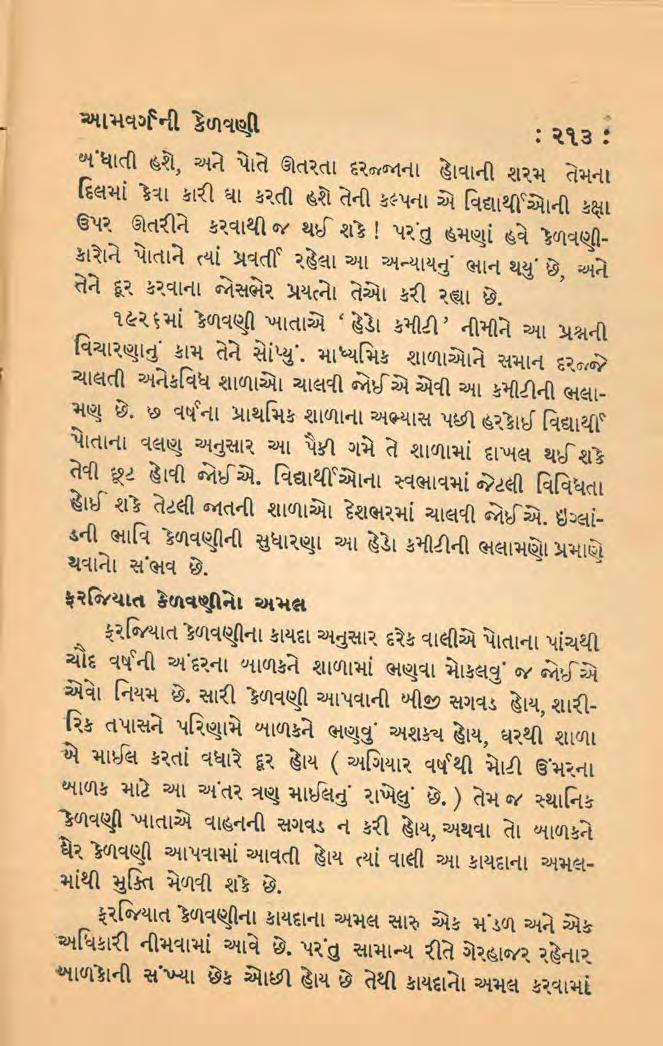 આમવર્ગની કેળવણી
: ૨૧૩ :
બંધાતી હશે, અને પોતે ઊતરતા દરજ્જાના હોવાની શરમ તેમના
દિલમાં કેવા કારી ઘા કરતી હશે તેની કલ્પના એ વિદ્યાર્થીઓની કક્ષા
ઉપર ઊતરીને કરવાથી જ થઈ શકે ! પરંતુ હમણાં હવે કેળવણી-
કારોને પોતાને ત્યાં પ્રવર્તી રહેલા આ અન્યાયનું ભાન થયું છે, અને
તેને દૂર કરવાના જોસભેર પ્રયત્નો તેઓ કરી રહ્યા છે.
૧૯૨૬માં કેળવણી ખાતાએ ‘ હેડો કમીટી ’ નીમીને આ પ્રશ્નની
વિચારણાનું કામ તેને સોંપ્યું. માધ્યમિક શાળાઓને સમાન દરજ્જે
ચાલતી અનેકવિધ શાળાઓ ચાલવી જોઈએ એવી આ કમીટીની ભલા-
મણ છે. છ વર્ષના પ્રાથમિક શાળાના અભ્યાસ પછી હરકોઈ વિદ્યાર્થી
પોતાના વલણ અનુસાર આ પૈકી ગમે તે શાળામાં દાખલ થઈ શકે
તેવી છૂટ હોવી જોઈએ. વિદ્યાર્થીઓના સ્વભાવમાં જેટલી વિવિધતા
હોઈ શકે તેટલી જાતની શાળાઓ દેશભરમાં ચાલવી જોઈએ. ઇંગ્લાં-
ડની ભાવિ કેળવણીની સુધારણા આ હેડો કમીટીની ભલામણો પ્રમાણે
થવાનો સંભવ છે.
ફરજિયાત કેળવણીનો અમલ
ફરજિયાત કેળવણીના કાયદા અનુસાર દરેક વાલીએ પોતાના પાંચથી
ચૌદ વર્ષની અંદરના બાળકને શાળામાં ભણવા મોકલવું જ જોઈએ
એવો નિયમ છે. સારી કેળવણી આપવાની બીજી સગવડ હોય, શારી-
રિક તપાસને પરિણામે બાળકને ભણવું અશક્ય હોય, ઘરથી શાળા
બે માઈલ કરતાં વધારે દૂર હોય ( અગિયાર વર્ષથી મોટી ઉંમરના
બાળક માટે આ અંતર ત્રણ માઈલનું રાખેલું છે. ) તેમ જ સ્થાનિક
કેળવણી ખાતાએ વાહનની સગવડ ન કરી હોય, અથવા તો બાળકને
ઘેર કેળવણી આપવામાં આવતી હોય ત્યાં વાલી આ કાયદાના અમલ-
માંથી મુક્તિ મેળવી શકે છે.
ફરજિયાત કેળવણીના કાયદાના અમલ સારુ એક મંડળ અને એક
અધિકારી નીમવામાં આવે છે. પરંતુ સામાન્ય રીતે ગેરહાજર રહેનાર
બાળકોની સંખ્યા છેક ઓછી હોય છે તેથી કાયદાનો અમલ કરવામાં